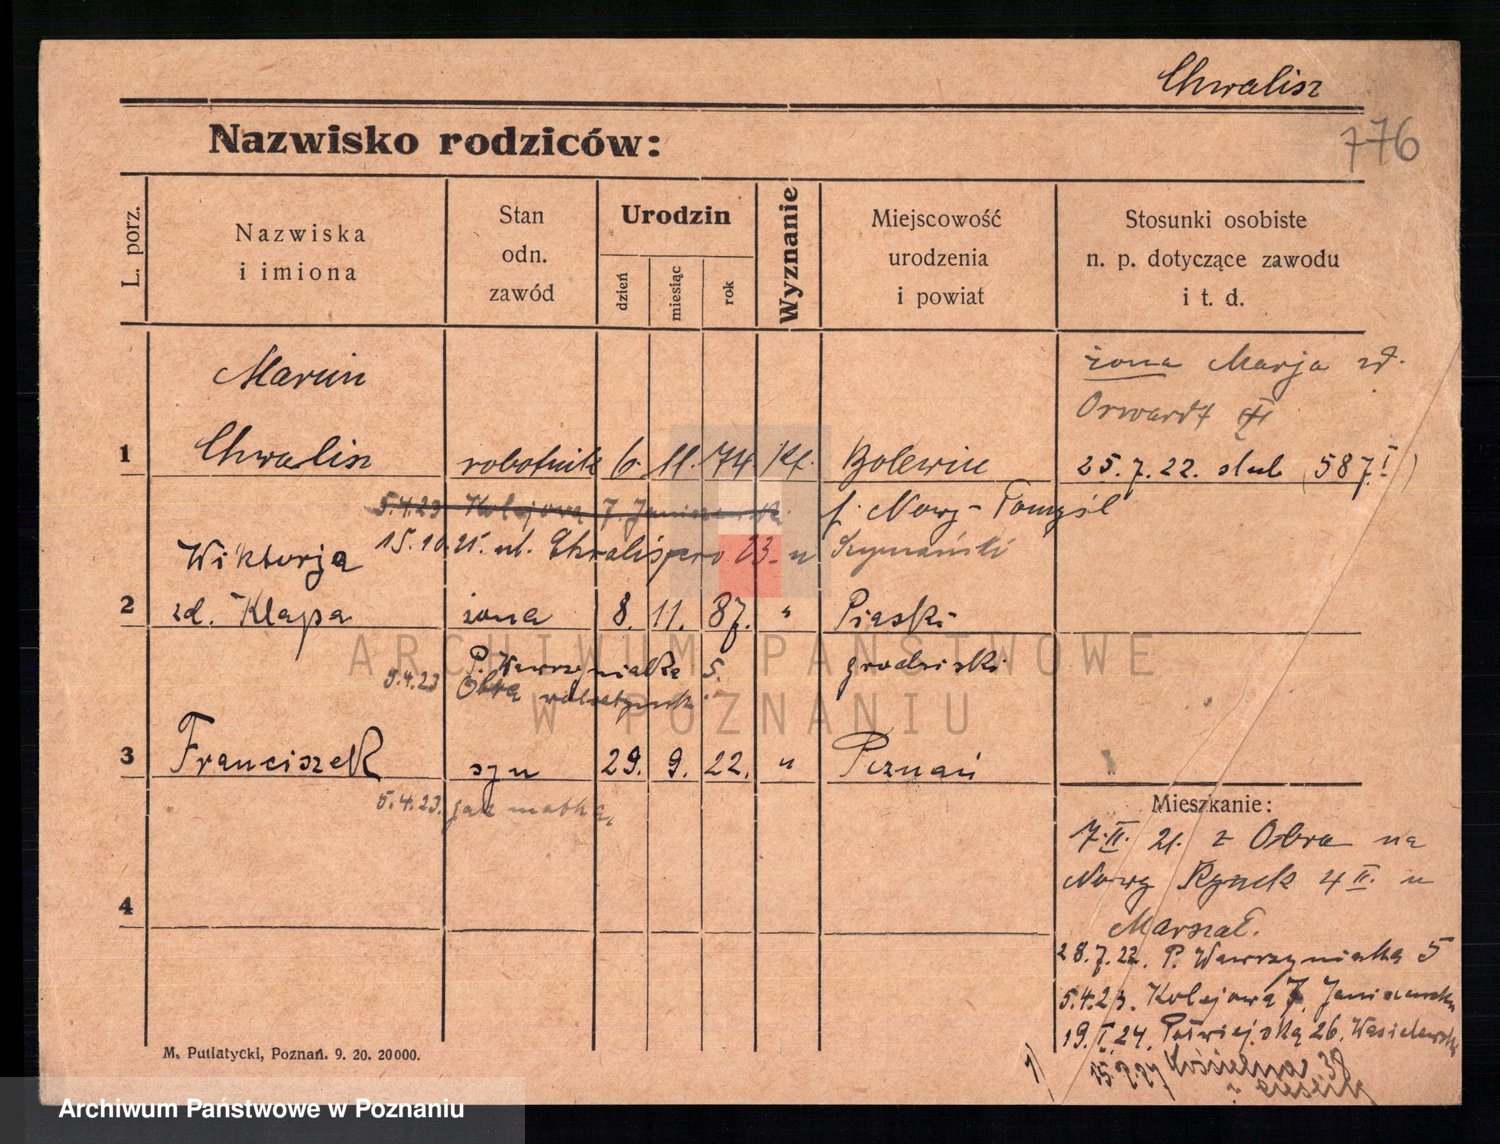 Chwalisz
776
Nazwisko rodziców:
L. porz.
Nazwiska
i imiona
Stan
odn.
zawód
Urodzin
dzień
miesiąc
rok
Wyznanie
Miejscowość
urodzenia
i powiat
Stosunki osobiste
n. p. dotyczące zawodu
i t. d.
żona Marja zd.
Orwardt
Marcin
1 Chwalisz robotnik 6. 11. 74 Kt. Bolewice 25.7.22. slub (587 I)
5.4.23 Kolejowa 7. p. Nowy-Tomyśl
15.10.25. ul. 23 - u Szymański
Wiktorja
2 zd. Klapa żona 8. 11. 87. " Piaski
P. Wawrzyniaka 5. grodziski
5.4.23 Obra
3 Franciszek syn 29. 9. 22. " Poznań
5.4.23. jak matka.
Mieszkanie:
7.II. 21. z Obra na
Nowy Rynek 4 II. u
Marszał.
4
28.7.22. P. Wawrzyniaka 5
5.4.23. Kolejowa 7.
19.I.24. 26.
Kościelna 38
M. Putiatycki, Poznań. 9. 20. 20000.
ARCHIWUM PAŃSTWOWE
W POZNANIU
Archiwum Państwowe w Poznaniu